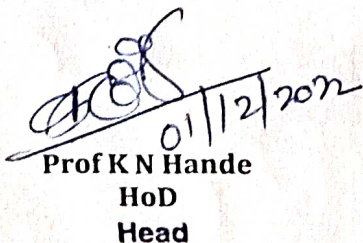 01/12/2022
Prof K N Hande
HoD
Head